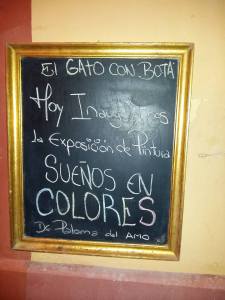 El GATO CON BOTA
Hoy Inauguramos
la Exposición de Pintura
SUEÑOS EN
COLORES
De Paloma del AMO